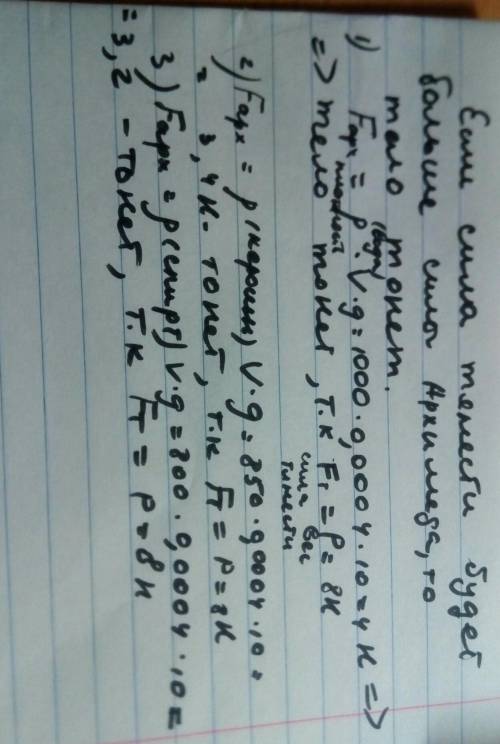 Если сила тяжести будет
больше силы Архимеда, то
тело тонет.
1) Fарх = ρ(воды)·V·g = 1000·0,0004·10=4Н =>
=> тело тонет, т.к Fт = P = 8Н
сила вес
тяжести
2) Fарх = ρ(керосин) V·g = 850·0,0004·10 =
= 3,4Н - тонет, т.к Fт = P = 8Н
3) Fарх = ρ(спирт) V·g = 800·0,0004·10 =
= 3,2 - тонет, т.к Fт = P = 8Н